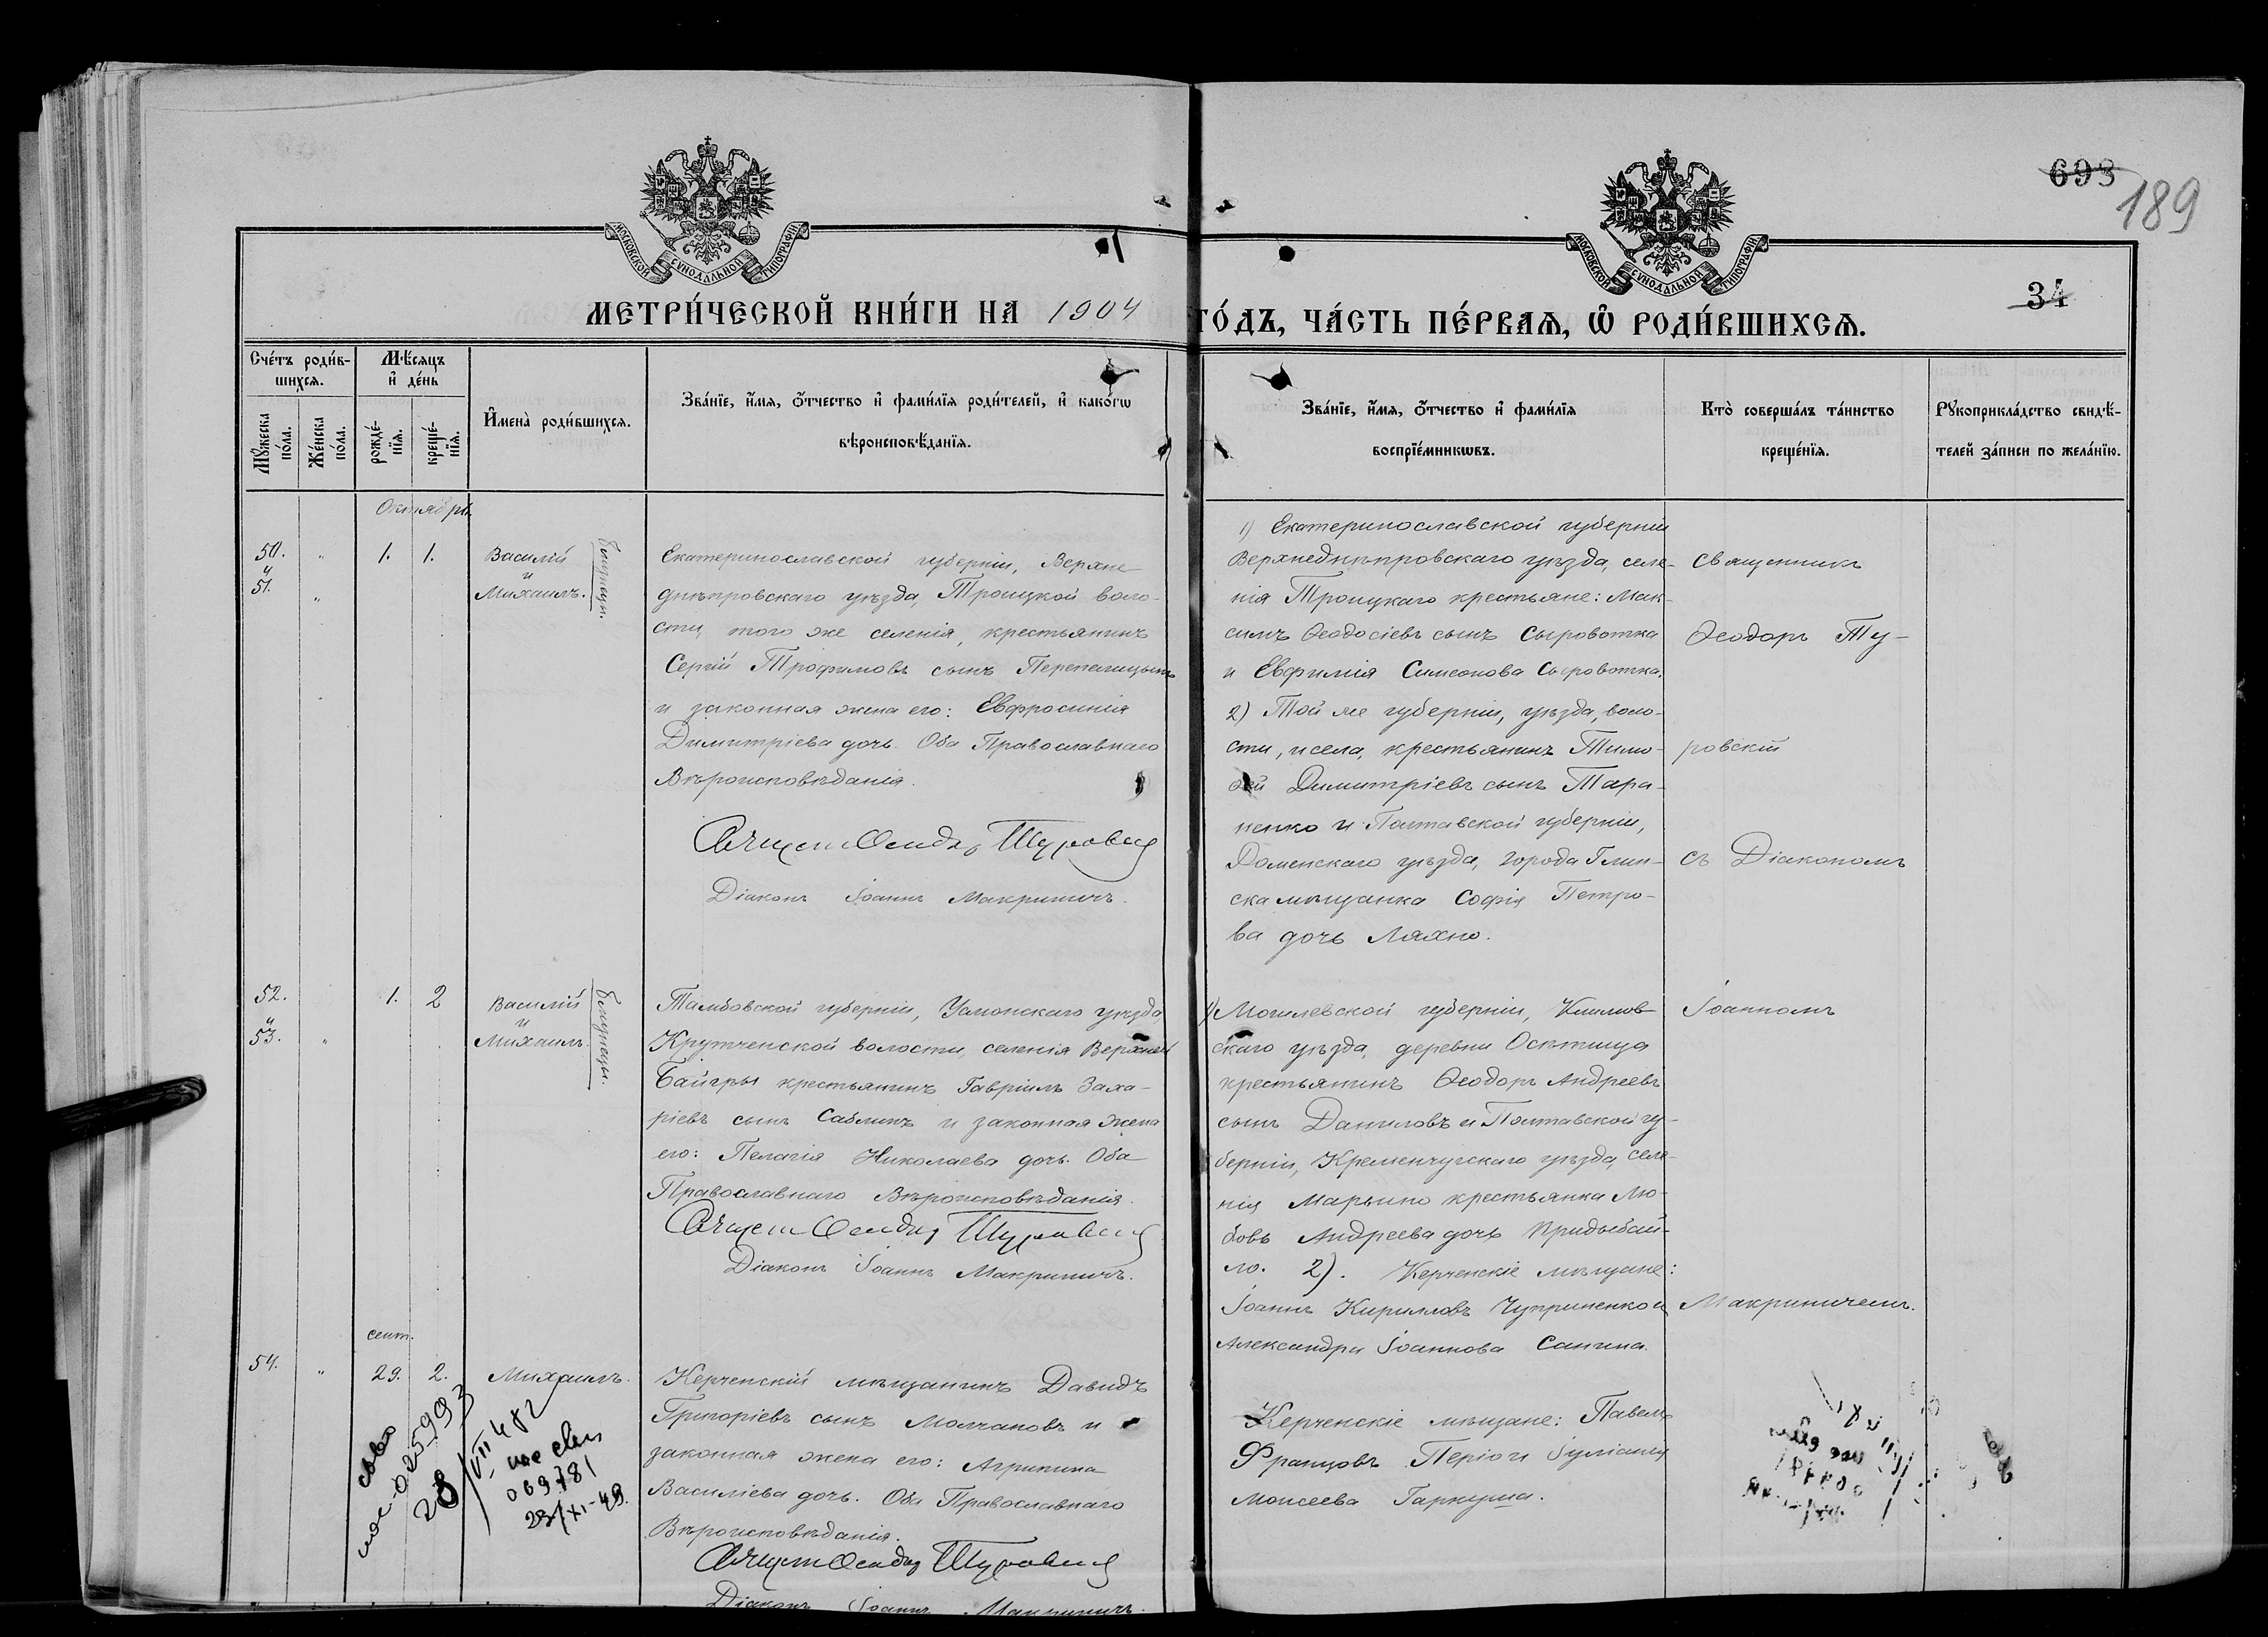 693
189
34
МОСКОВСКОЙ СѴНОДАЛЬНОЙ ТИПОГРАФІИ
МОСКОВСКОЙ СѴНОДАЛЬНОЙ ТИПОГРАФІИ
МЕТРИ́ЧЕСКОЙ КНИ́ГИ НА 1904 ГО́ДЪ, ЧА́СТЬ ПЕ́РВАѦ, Ѡ҆ РОДИ́ВШИХСѦ.
Сче́тъ роди́в-
шихсѧ.
Мꙋ́жеска по́ла.
Же́нска по́ла.
Мѣ́сѧцъ и҆ де́нь
рожде́-нїѧ.
креще́-нїѧ.
И҆мена̀ роди́вшихсѧ.
Зва́нїе, и҆́мѧ, ѻ҆́тчество и҆ фами́лїѧ роди́телей, и҆ како́гѡ
вѣроисповѣ́данїѧ.
Зва́нїе, и҆́мѧ, ѻ҆́тчество и҆ фами́лїѧ
воспрїе́мникѡвъ.
Кто̀ соверша́лъ та́инство
креще́нїѧ.
Рꙋкоприкла́дство свидѣ́-
телей за́писи по жела́нїю.
Октябрь
50. " 1. 1. Василій
и
51. " Михаилъ. близнецы.
Екатеринославской губерніи, Верхне
днѣпровскаго уѣзда, Троицкой воло-
сти, того же селенія, крестьянинъ
Сергій Трофимовъ сынъ Перепелицынъ
и законная жена его: Евфросинія
Димитріева дочь. Оба Православнаго
Вѣроисповѣданія.
Діаконъ Іоаннъ Макриничъ.
1) Екатеринославской губерніи
Верхнеднѣпровскаго уѣзда, селе-
нія Троицкаго крестьяне: Мак-
симъ Ѳеодосіевъ сынъ Сыровотка
и Евфимія Симеонова Сыровотка.
2) Той же губерніи, уѣзда, воло-
сти, и села, крестьянинъ Тимо-
ѳей Димитріевъ сынъ Тара-
ненко и Полтавской губерніи,
Роменскаго уѣзда, города Глин-
ска мѣщанка Софія Петро-
ва дочь Ляхно.
Священникъ
Ѳеодоръ Ту-
ровскій
съ Діакономъ
Іоанномъ
Макриничемъ.
52. 1. 2 Василій
и
53. " Михаилъ. близнецы.
Тамбовской губерніи, Усмонскаго уѣзда,
Крутченской волости, селенія Верхней
Байгры крестьянинъ Гавріилъ Заха-
ріевъ сынъ Саблинъ и законная жена
его: Пелагія Николаева дочь. Оба
Православнаго Вѣроисповѣданія.
Діаконъ Іоаннъ Макриничъ.
1) Могилевской губерніи, Климов-
скаго уѣзда, деревни Осѣтища
крестьянинъ Ѳеодоръ Андреевъ
сынъ Даниловъ и Полтавской гу-
берніи, Кременчугскаго уѣзда, селе-
нія Марьино крестьянка Лю-
бовь Андреева дочь Придыбай-
ло. 2). Керченскіе мѣщане:
Іоаннъ Кирилловъ Чуприненко и
Александра Іоаннова Санина.
сент.
54. " 29. 2. Михаилъ.
Керченскій мѣщанинъ Давидъ
Григоріевъ сынъ Молчановъ и
законная жена его: Агрипина
Василіева дочь. Оба Православнаго
Вѣроисповѣданія.
Діаконъ Іоаннъ Макриничъ.
Керченскіе мѣщане: Павелъ
Францовъ Перло и Іуліанія
Моисеева Гаркуша.
025993
069781
23/XI-49.